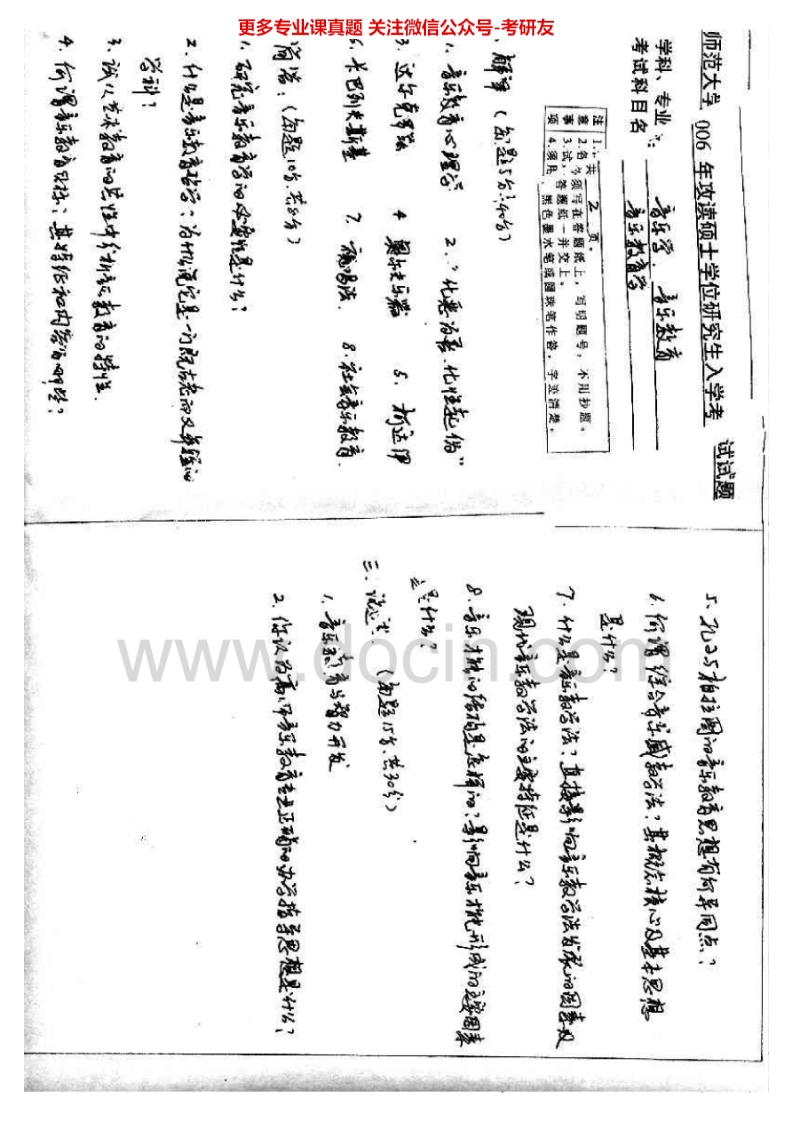 更多专业课真题 关注微信公众号-考研友
师范大学 006 年攻读硕士学位研究生入学考 试试题
学科、专业 音乐学, 音乐教育
考试科目名 音乐教育学
注意事项
1. 共 2 页。
2. 须写在答题纸上,写明题号,不用抄题。
3. 试, 答题纸一并交上。
4. 须用, 黑色墨水笔或圆珠笔作答,字迹清楚。
解释 (每题5分,40分)
1. 音乐教育心理学 2. “化恶为善 化性起伪”
3. 达尔克罗兹 4 奥尔夫乐器 5. 柯达伊
6. 卡巴列夫斯基 7. 视唱法. 8. 社会音乐教育.
简答: (每题10分,共80分)
1. 研究音乐教育学的必要性是什么?
2. 什么是音乐教育哲学? 为什么说它是一门既古老而又年轻的
学科?
3. 试从艺术教育的共性中分析音乐教育的特性.
4. 何谓音乐教育目标? 其特征和内容有哪些?
5. 孔丘与柏拉图的音乐教育思想有何异同点?
6. 何谓“综合音乐感教学法”? 其概念核心及基本思想
是什么?
7. 什么是音乐教学法? 直接影响音乐教学法发展的因素及
现代音乐教学法的主要特征是什么?
8. 音乐才能的结构是怎样的? 影响音乐才能形成的主要因素
是什么?
三. 论述. (每题15分,共30分)
1. 音乐教育与智力开发
2. 你认为高师音乐教育专业正确的办学指导思想是什么?
www.docin.com